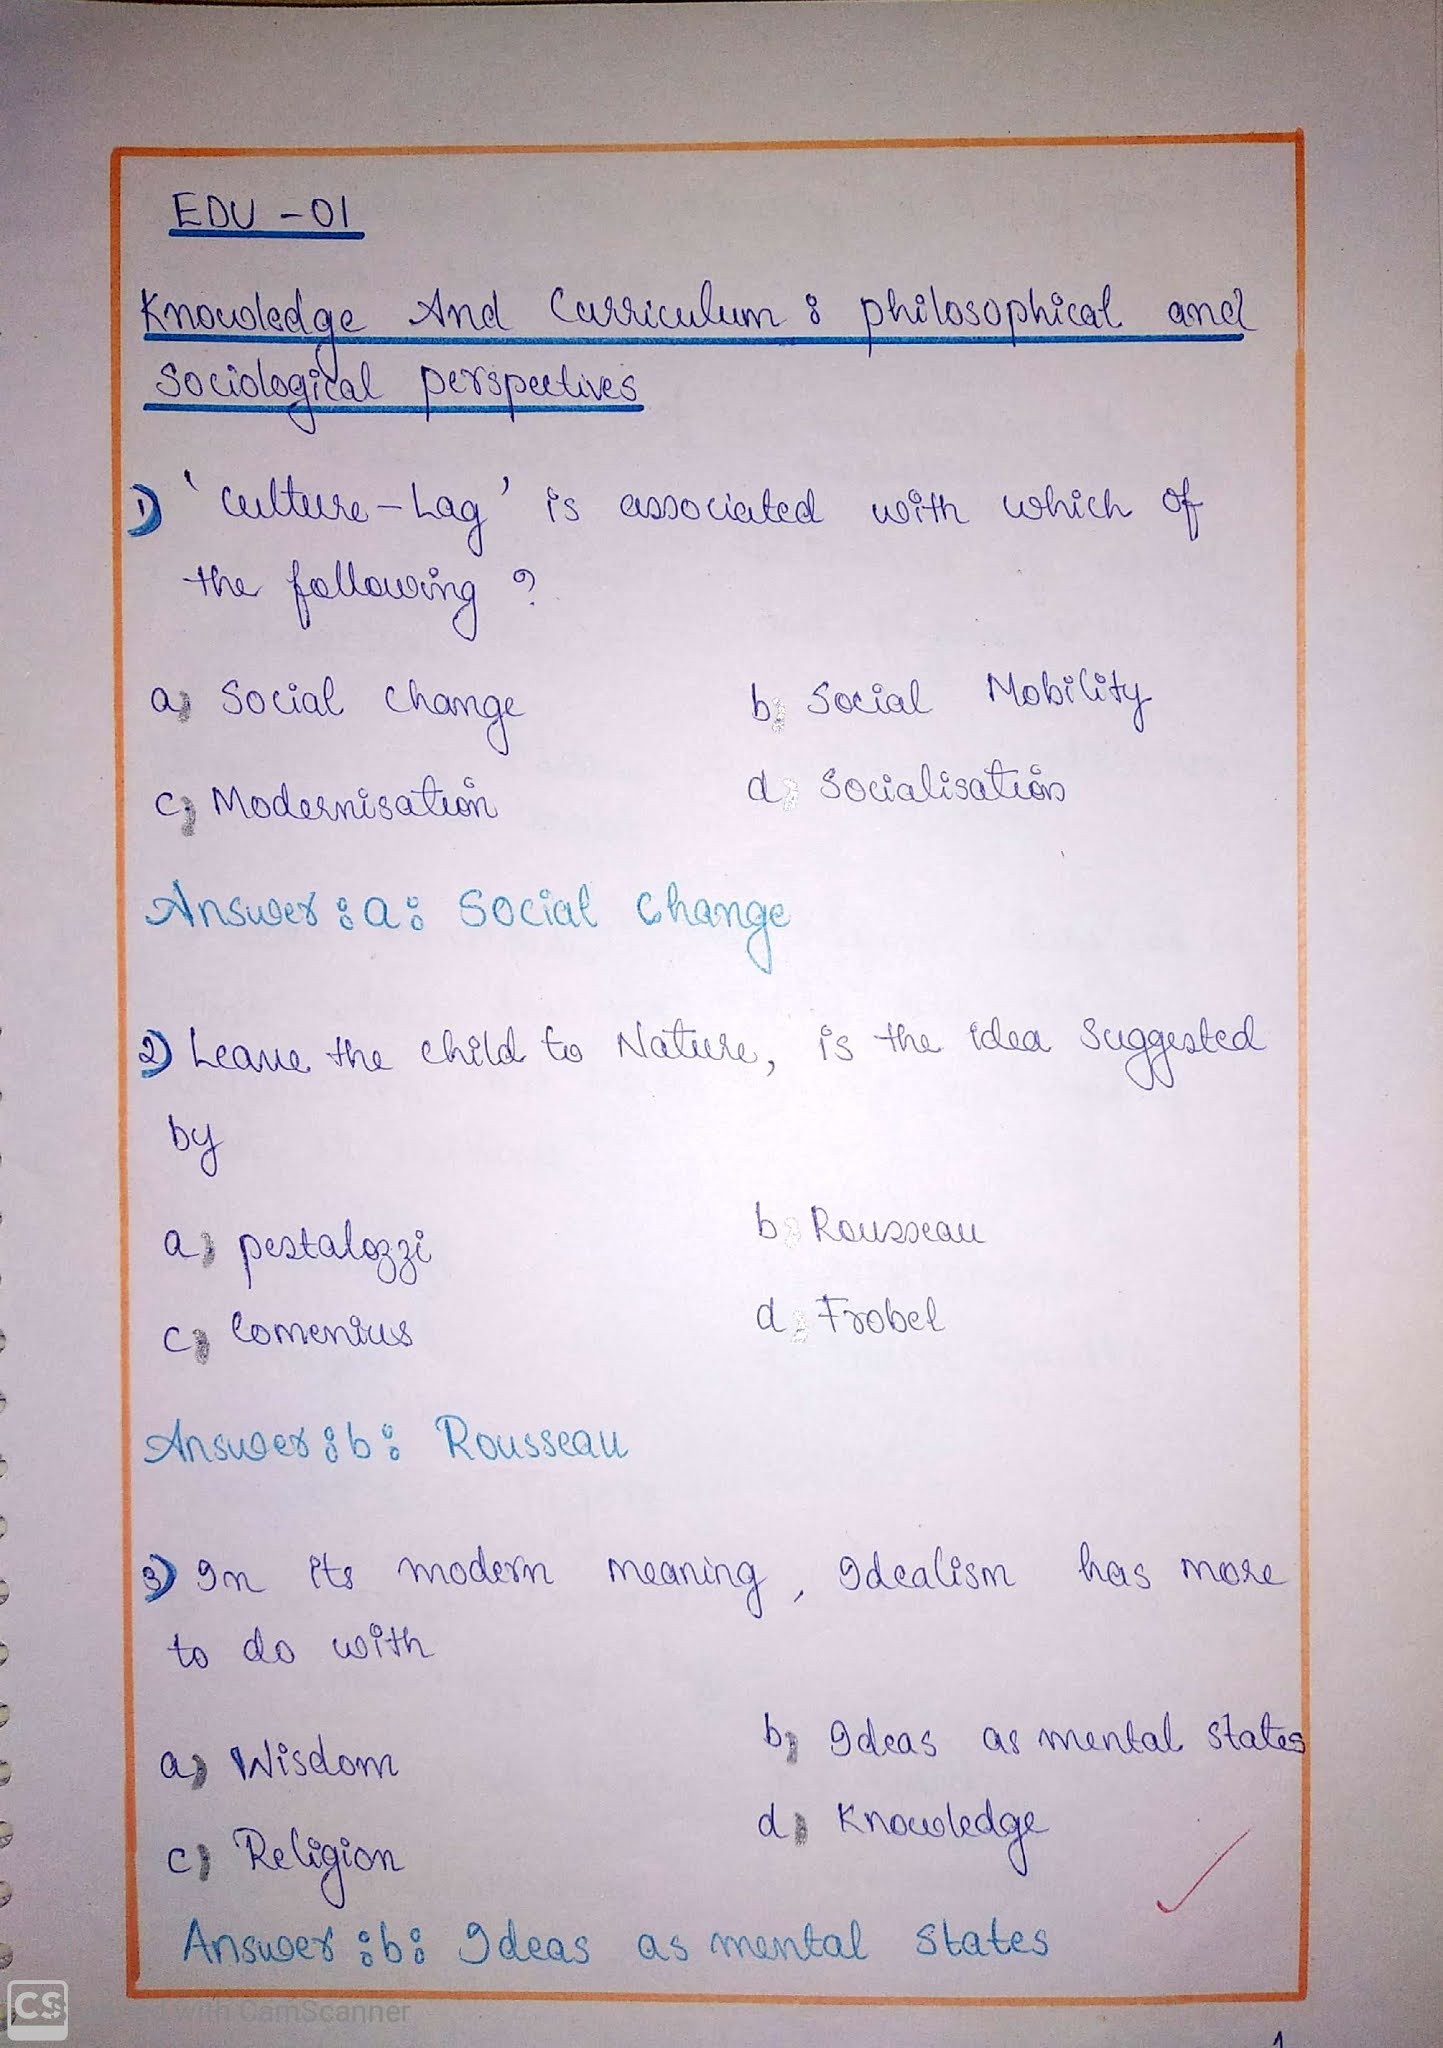 EDU - 01
Knowledge And Curriculum : philosophical and
Sociological perspectives
1) 'Culture - Lag' is associated with which of
the following ?
a) Social change
b) Social Mobility
c) Modernisation
d) Socialisation
Answer : a : Social change
2) Leave the child to Nature, is the idea suggested
by
a) pestalozzi
b) Rousseau
c) Comenius
d) Frobel
Answer : b : Rousseau
3) In its modern meaning, Idealism has more
to do with
a) Wisdom
b) Ideas as mental states
c) Religion
d) Knowledge
Answer : b : Ideas as mental states
CS
with CamScanner
1